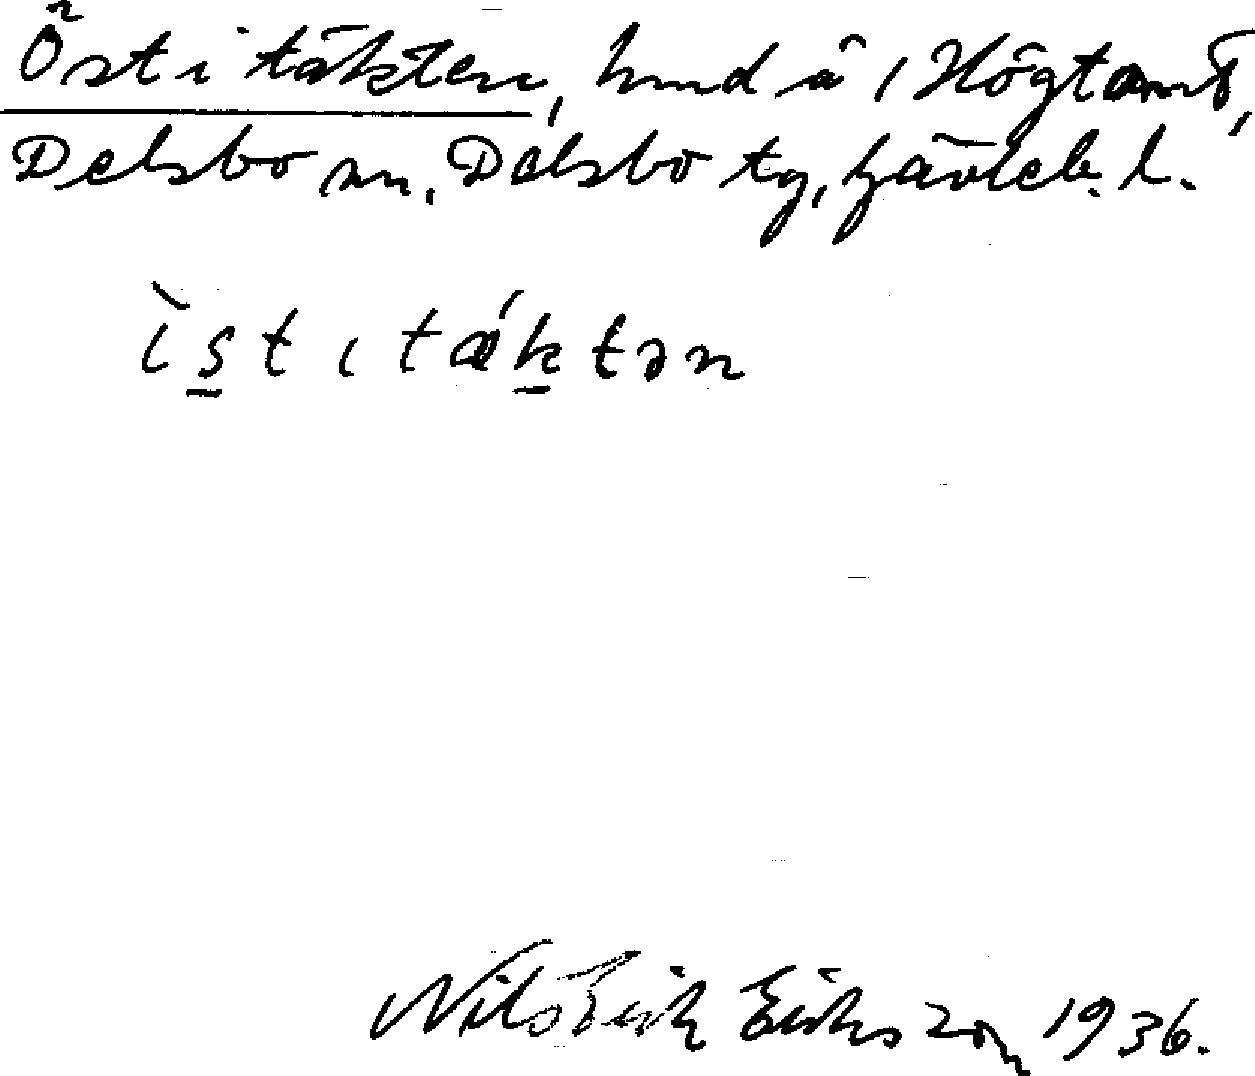 Öst i täkten, hmd å i Högtomt,
Delsbo sn, Delsbo tg, Gävleb. l.
ìst ı tä́ktən
Nils Erik Eriksson 1936.